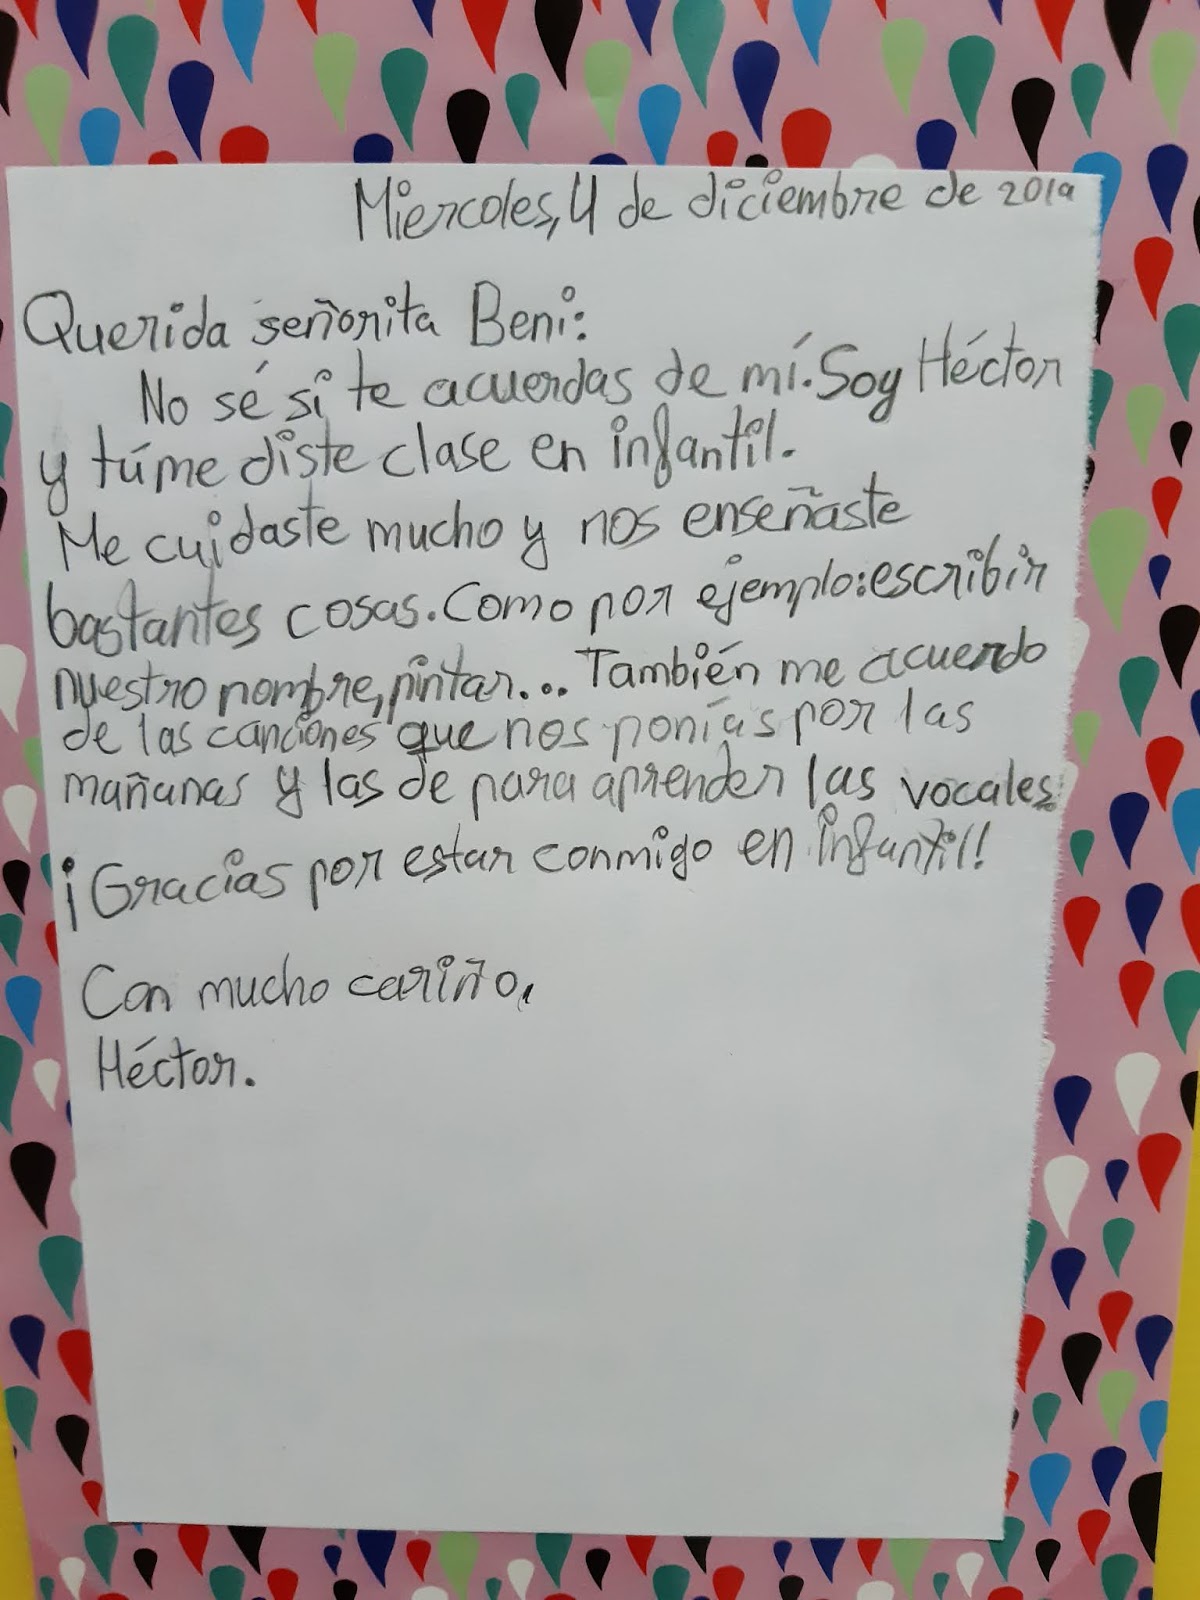 Miercoles, 4 de diciembre de 2019
Querida señorita Beni:
No sé si te acuerdas de mí. Soy Héctor
y túme diste clase en infantil.
Me cuidaste mucho y nos enseñaste
bastantes cosas. Como por ejemplo: escribir
nuestro nombre, pintar... También me acuerdo
de las canciones que nos ponías por las
mañanas y las de para aprender las vocales.
¡Gracias por estar conmigo en infantil!
Con mucho cariño,
Héctor.